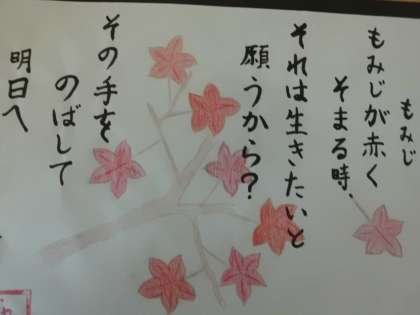 もみじ
もみじが赤く
そまる時、
それは生きたいと
願うから?
その手を
のばして
明日へ